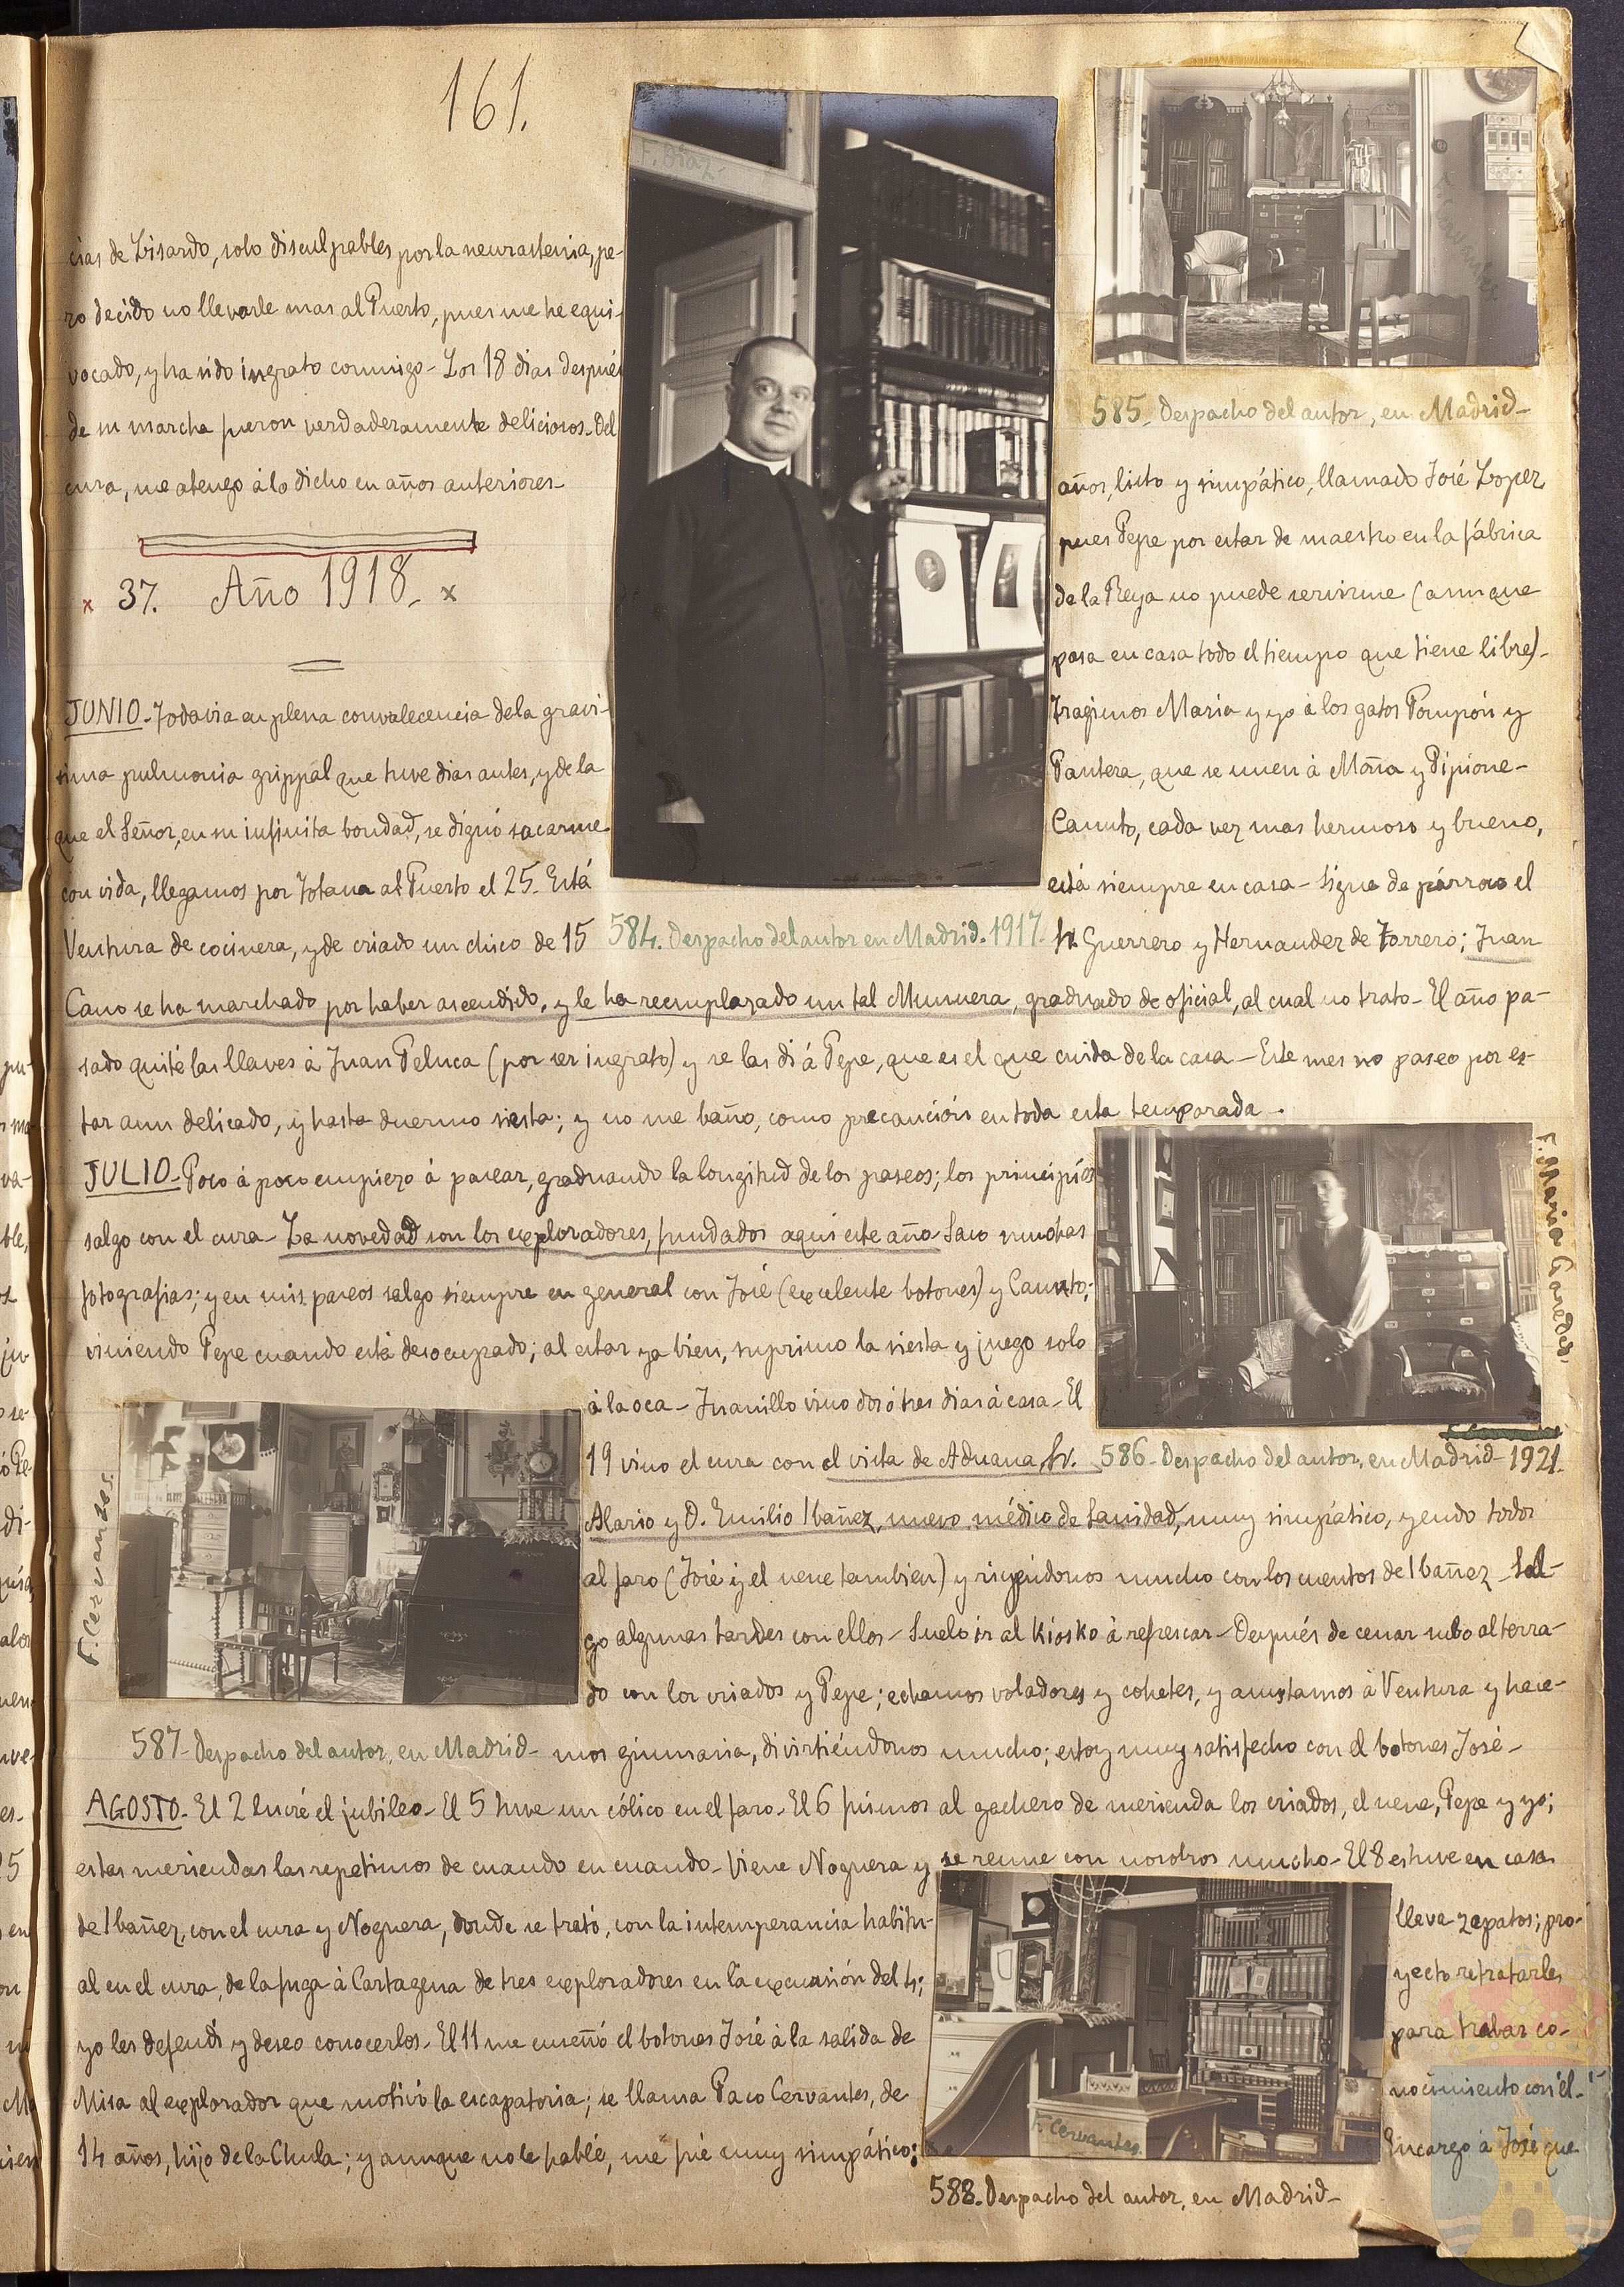 161.
F. Díaz.
cias de Lisardo, solo disculpables por la neurastenia, pe-
ro decido no llevarle mas al Puerto, pues me he equi-
vocado, y ha sido ingrato conmigo - Los 18 dias después
de su marcha fueron verdaderamente deliciosos. Del
cura, me atengo á lo dicho en años anteriores -
x 37. Año 1918. x
JUNIO - Todavia en plena convalecencia de la graví-
sima pulmonia grippal que tuve dias antes, y de la
que el Señor, en su infinita bondad, se dignó sacarme
con vida, llegamos por Totana al Puerto el 25. Está
Ventura de cocinera, y de criado un chico de 15
584. Despacho del autor en Madrid. 1917.
585. Despacho del autor, en Madrid -
años, listo y simpático, llamado José Lopez
pues Pepe por estar de maestro en la fábrica
de la Reya no puede servirme (aunque
pasa en casa todo el tiempo que tiene libre) -
Tragimos Maria y yo á los gatos Pompón y
Pantera, que se unen á Moña y Pipione -
Canuto, cada vez mas hermoso y bueno,
está siempre en casa - Sigue de párroco el
Sr. Guerrero y Hernandez de Torrero; Juan
Cano se ha marchado por haber ascendido, y le ha reemplazado un tal Munuera, graduado de oficial, al cual no trato - El año pa-
sado quité las llaves á Juan Peluca (por ser ingrato) y se las dí á Pepe, que es el que cuida de la casa - Este mes no paseo por es-
tar aun delicado, y hasta duermo siesta; y no me baño, como precaución en toda esta temporada -.
JULIO - Poco á poco empiezo á pasear, graduando la longitud de los paseos; los principios
salgo con el cura - La novedad son los exploradores, fundados aqui este año - Saco muchas
fotografias; y en mis paseos salgo siempre en general con José (excelente botones) y Canuto;
viniendo Pepe cuando está desocupado; al estar ya bien, suprimo la siesta y juego solo
á la oca - Juanillo vino dos ó tres dias á casa - El
F. Maria Paredes.
19 vino el cura con el vista de Aduana, Sr.
586 - Despacho del autor, en Madrid - 1921.
Alario y D. Emilio Ibañez, nuevo médico de Sanidad, muy simpático, yendo todos
al faro (José y el nene tambien) y riyéndonos mucho con los cuentos de Ibañez - Sal-
go algunas tardes con ellos - Suelo ir al Kiosko á refrescar - Después de cenar subo al terra-
do con los criados y Pepe; echamos voladores y cohetes, y asustamos á Ventura y hace-
F. Cervantes.
587 - Despacho del autor, en Madrid -
mos gimnasia, divirtiéndonos mucho; estoy muy satisfecho con el botones José -
AGOSTO - El 2 lucré el jubileo - El 5 tuve un cólico en el faro - El 6 fuimos al gachero de merienda los criados, el nene, Pepe y yo;
estas meriendas las repetimos de cuando en cuando - Viene Noguera y se reune con nosotros mucho - El 8 estuve en casa
de Ibañez, con el cura y Noguera, donde se trató, con la intemperancia habitu-
al en el cura, de la fuga á Cartagena de tres exploradores en la excursión del 4;
yo les defendí y deseo conocerlos - El 11 me enseñó el botones José á la salida de
Misa al explorador que motivó la escapatoria; se llama Paco Cervantes, de
14 años, hijo de la Chula; y aunque no le hablé, me fué muy simpático;
F. Cervantes.
588. Despacho del autor, en Madrid -
lleva zapatos; pro-
yecto retratarles
para trabar co-
nocimiento con él -
Encargo á José que